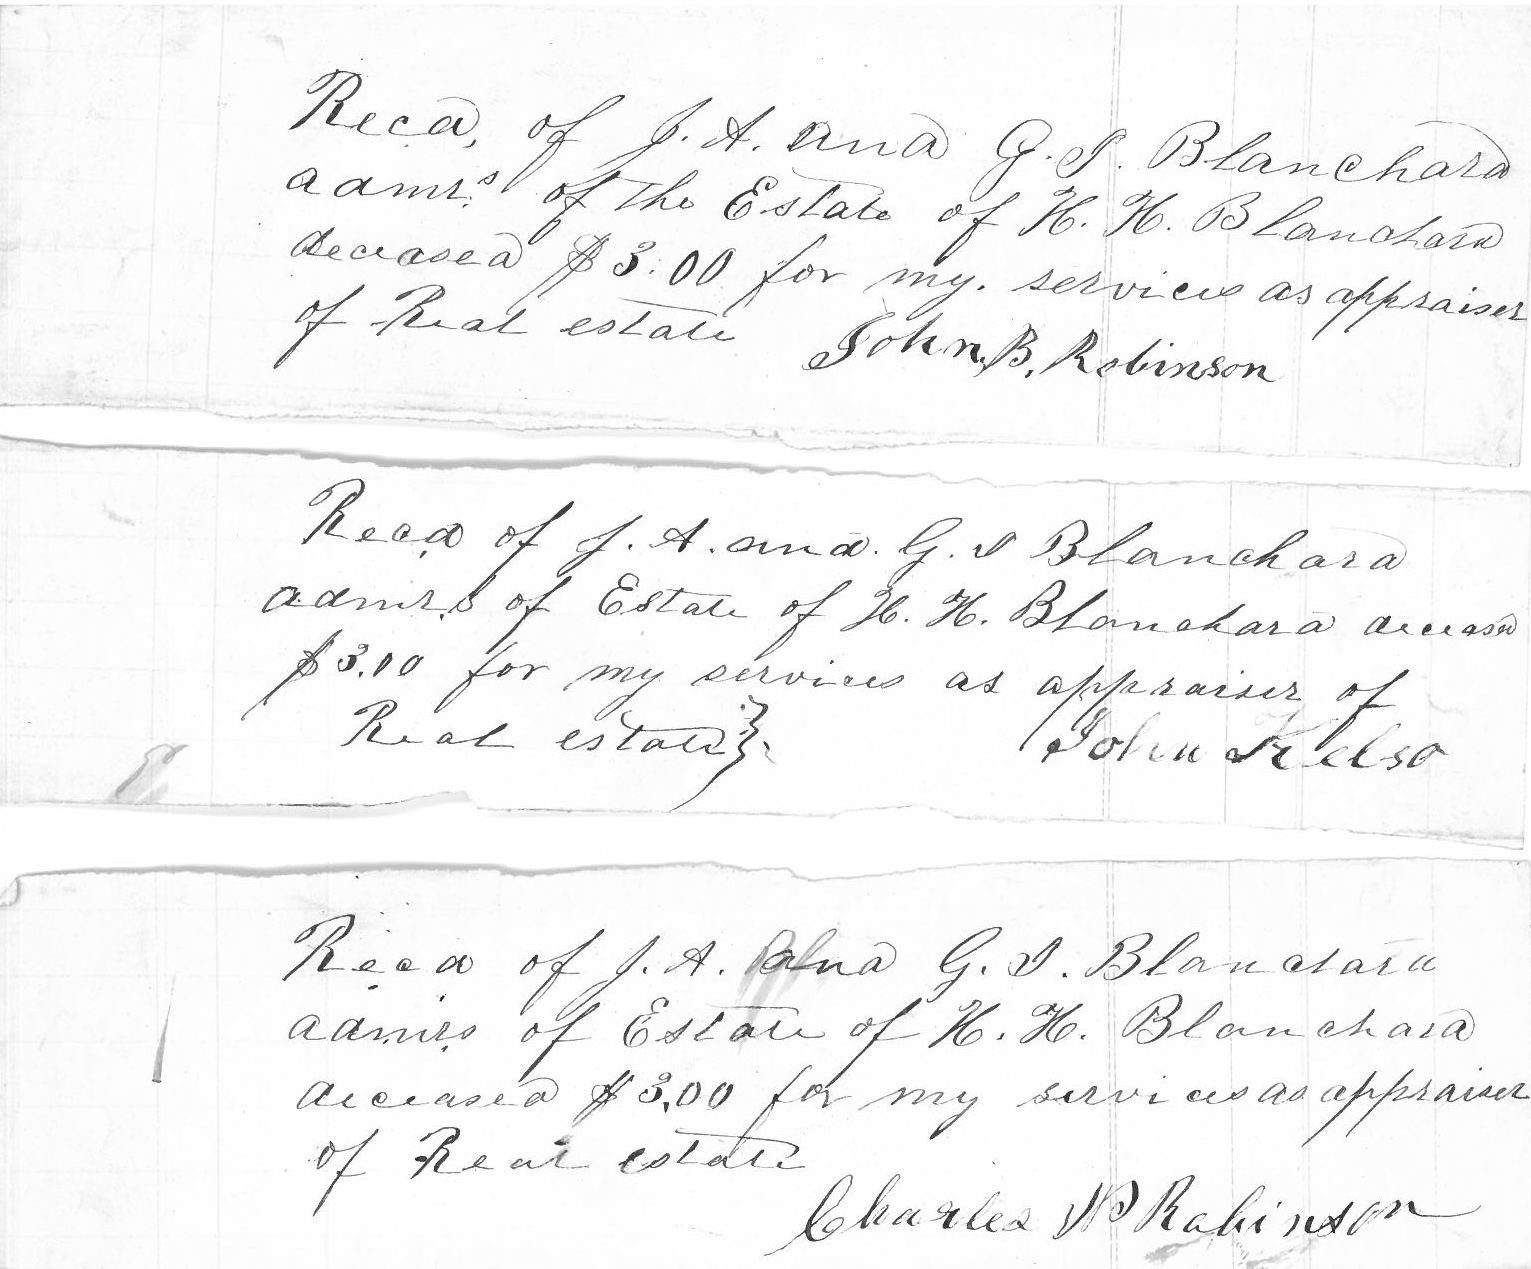 Recd, of J. A. and G. S. Blanchard
admrs. of the Estate of H. H. Blanchard
deceased $3.00 for my. services as appraiser
of Real estate John. B. Robinson
Recd of J. A. and. G. S Blanchard
admrs of Estate of H. H. Blanchard deceased
$3.00 for my services as appraiser of
Real estate} John Kelso
Recd of J. A. and G. S. Blanchard
admrs of Estate of H. H. Blanchard
deceased $3,00 for my services as appraiser
of Real estate
Charles Robinson